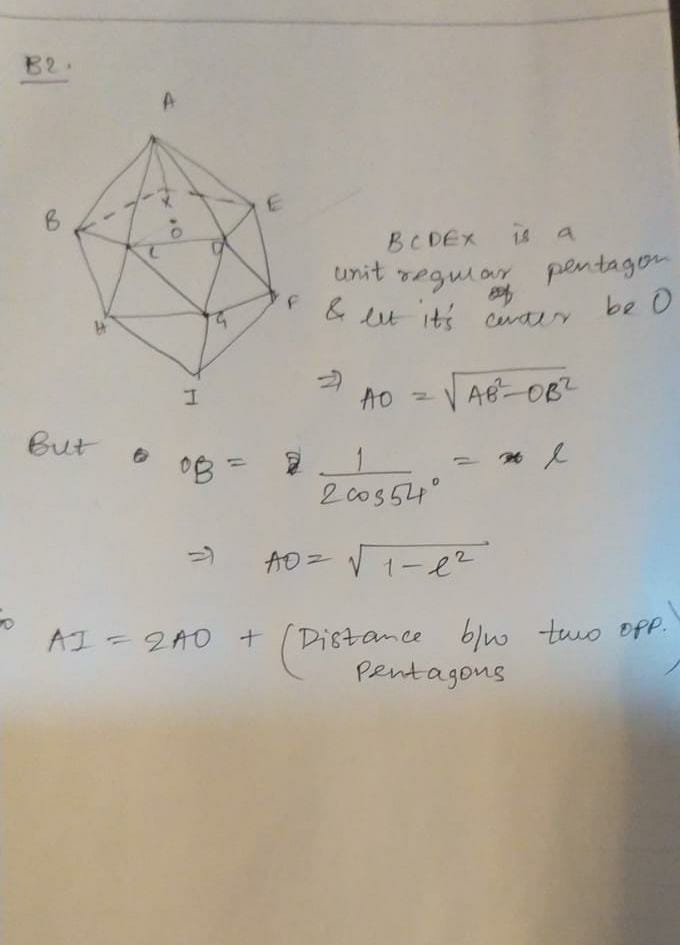 B2.
A
X
E
B
O
C
D
BCDEX is a
unit regular pentagon
& let it's center be O
F
H
G
I
⇒ AO = √(AB²-OB²)
But OB = 1/(2cos54°) = l
⇒ AO = √(1-l²)
AI = 2AO + (Distance b/w two opp.
Pentagons)